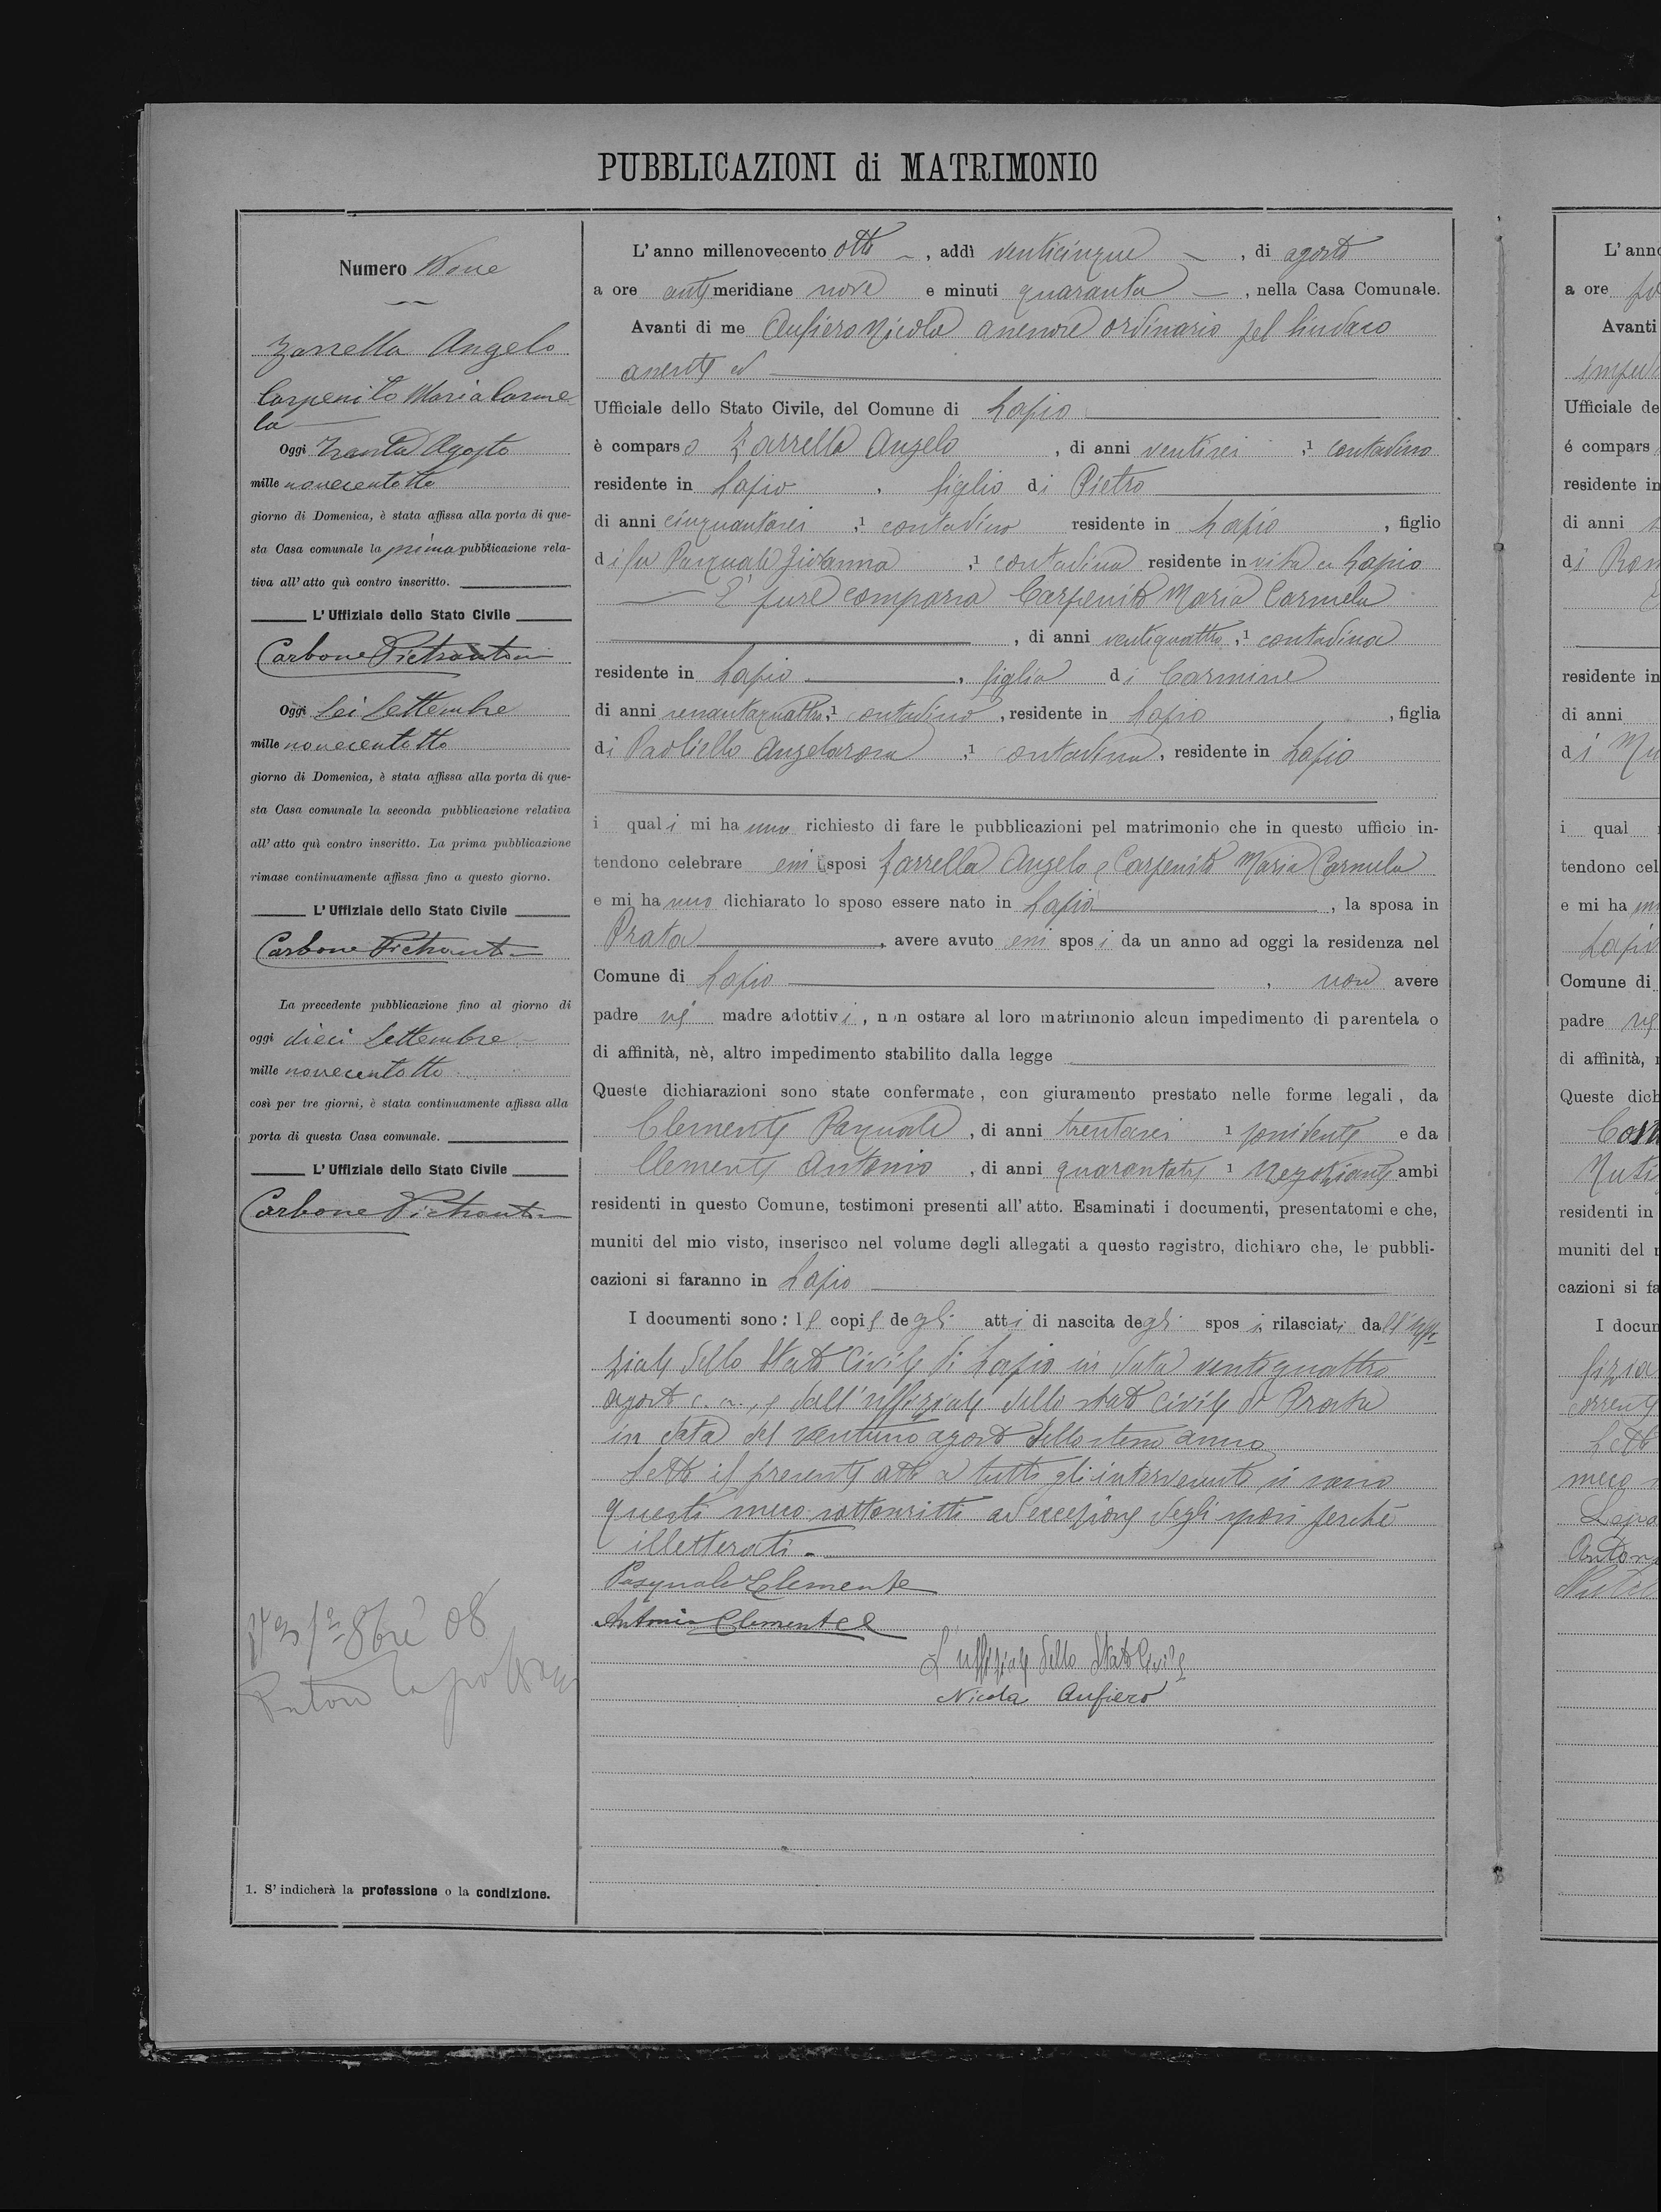 PUBBLICAZIONI di MATRIMONIO
Numero Nove
Zarrella Angelo
Carpenito Maria Carme-
la
Oggi Trenta Agosto
mille novecentotto
giorno di Domenica, è stata affissa alla porta di que-
sta Casa comunale la prima pubblicazione rela-
tiva all' atto quì contro inscritto.
L' Uffiziale dello Stato Civile
Carbone Pietrantonio
Oggi Sei Settembre
mille novecentotto
giorno di Domenica, è stata affissa alla porta di que-
sta Casa comunale la seconda pubblicazione relativa
all' atto quì contro inscritto. La prima pubblicazione
rimase continuamente affissa fino a questo giorno.
L' Uffiziale dello Stato Civile
Carbone Pietrant
La precedente pubblicazione fino al giorno di
oggi dieci Settembre
mille novecentotto
così per tre giorni, è stata continuamente affissa alla
porta di questa Casa comunale.
L' Uffiziale dello Stato Civile
Carbone Pietrant
8bre 08
1. S' indicherà la professione o la condizione.
L' anno millenovecento otto, addì venticinque, di agosto
a ore antimeridiane nove e minuti quaranta, nella Casa Comunale.
Avanti di me Aufiero Nicola assessore ordinario pel Sindaco
assente ed
Ufficiale dello Stato Civile, del Comune di Lapio
è comparso Zarrella Angelo, di anni ventisei ,1 contadino
residente in Lapio, figlio di Pietro
di anni cinquantasei ,1 contadino residente in Lapio, figlio
di fu Pasquale Giovanna ,1 contadina residente in vita a Lapio
È pure comparsa Carpenito Maria Carmela
, di anni ventiquattro ,1 contadina
residente in Lapio, figlia di Carmine
di anni sessantaquattro ,1 contadino, residente in Lapio, figlia
di Paoliello Angelarosa ,1 contadina, residente in Lapio
i quali mi hanno richiesto di fare le pubblicazioni pel matrimonio che in questo ufficio in-
tendono celebrare essi sposi Zarrella Angelo e Carpenito Maria Carmela
e mi hanno dichiarato lo sposo essere nato in Lapio, la sposa in
Prata, avere avuto essi sposi da un anno ad oggi la residenza nel
Comune di Lapio, non avere
padre nè madre adottivi, non ostare al loro matrimonio alcun impedimento di parentela o
di affinità, nè, altro impedimento stabilito dalla legge
Queste dichiarazioni sono state confermate, con giuramento prestato nelle forme legali, da
Clemente Pasquale, di anni trentasei 1 possidente e da
Clemente Antonio, di anni quarantatre 1 Negoziante ambi
residenti in questo Comune, testimoni presenti all' atto. Esaminati i documenti, presentatomi e che,
muniti del mio visto, inserisco nel volume degli allegati a questo registro, dichiaro che, le pubbli-
cazioni si faranno in Lapio
I documenti sono: le copie degli atti di nascita degli sposi, rilasciati dall'Uffi-
ziale dello Stato Civile di Lapio in data ventiquattro
agosto c. a., e dall'uffiziale dello stato civile di Prata
in data del ventuno agosto dello stesso anno
Letto il presente atto a tutti gli intervenuti si sono
questi meco sottoscritti ad eccezione degli sposi perchè
illetterati.
Pasquale Clemente
Antonio Clemente
L'uffiziale dello Stato Civile
Nicola Aufiero
L' anno
a ore
Avanti
Ufficiale de
é compars
residente in
di anni
di
residente in
di anni
di
i qual
tendono cel
e mi ha
Lapio
Comune di
padre nè
di affinità,
Queste dich
residenti in
muniti del
cazioni si fa
I docum